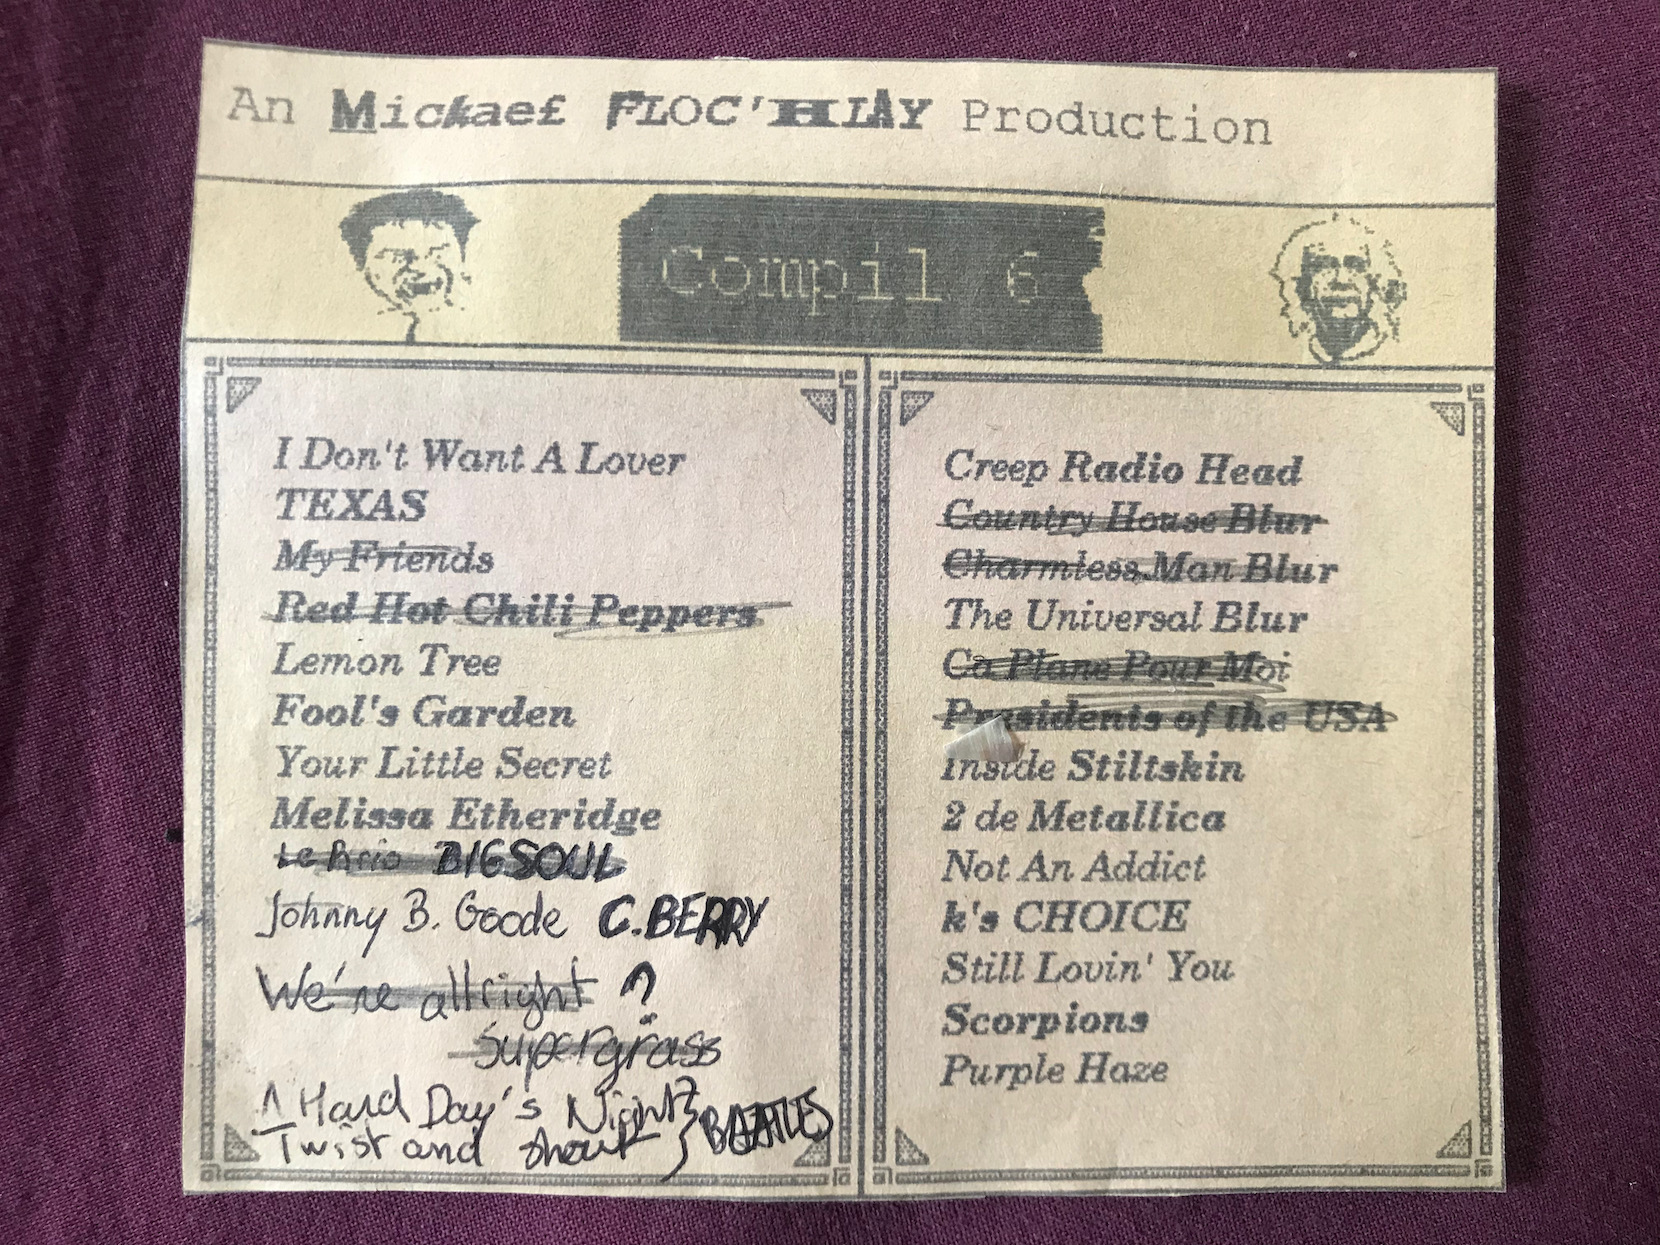 An Mickael FLOC'HLAY Production
Compil 6
I Don't Want A Lover
TEXAS
My Friends
Red Hot Chili Peppers
Lemon Tree
Fool's Garden
Your Little Secret
Melissa Etheridge
Le Brio BIGSOUL
Johnny B. Goode C.BERRY
We're allright ?
Supergrass
A Hard Day's Night
Twist and shout } BEATLES
Creep Radio Head
Country House Blur
Charmless Man Blur
The Universal Blur
Ca Plane Pour Moi
Presidents of the USA
Inside Stiltskin
2 de Metallica
Not An Addict
k's CHOICE
Still Lovin' You
Scorpions
Purple Haze